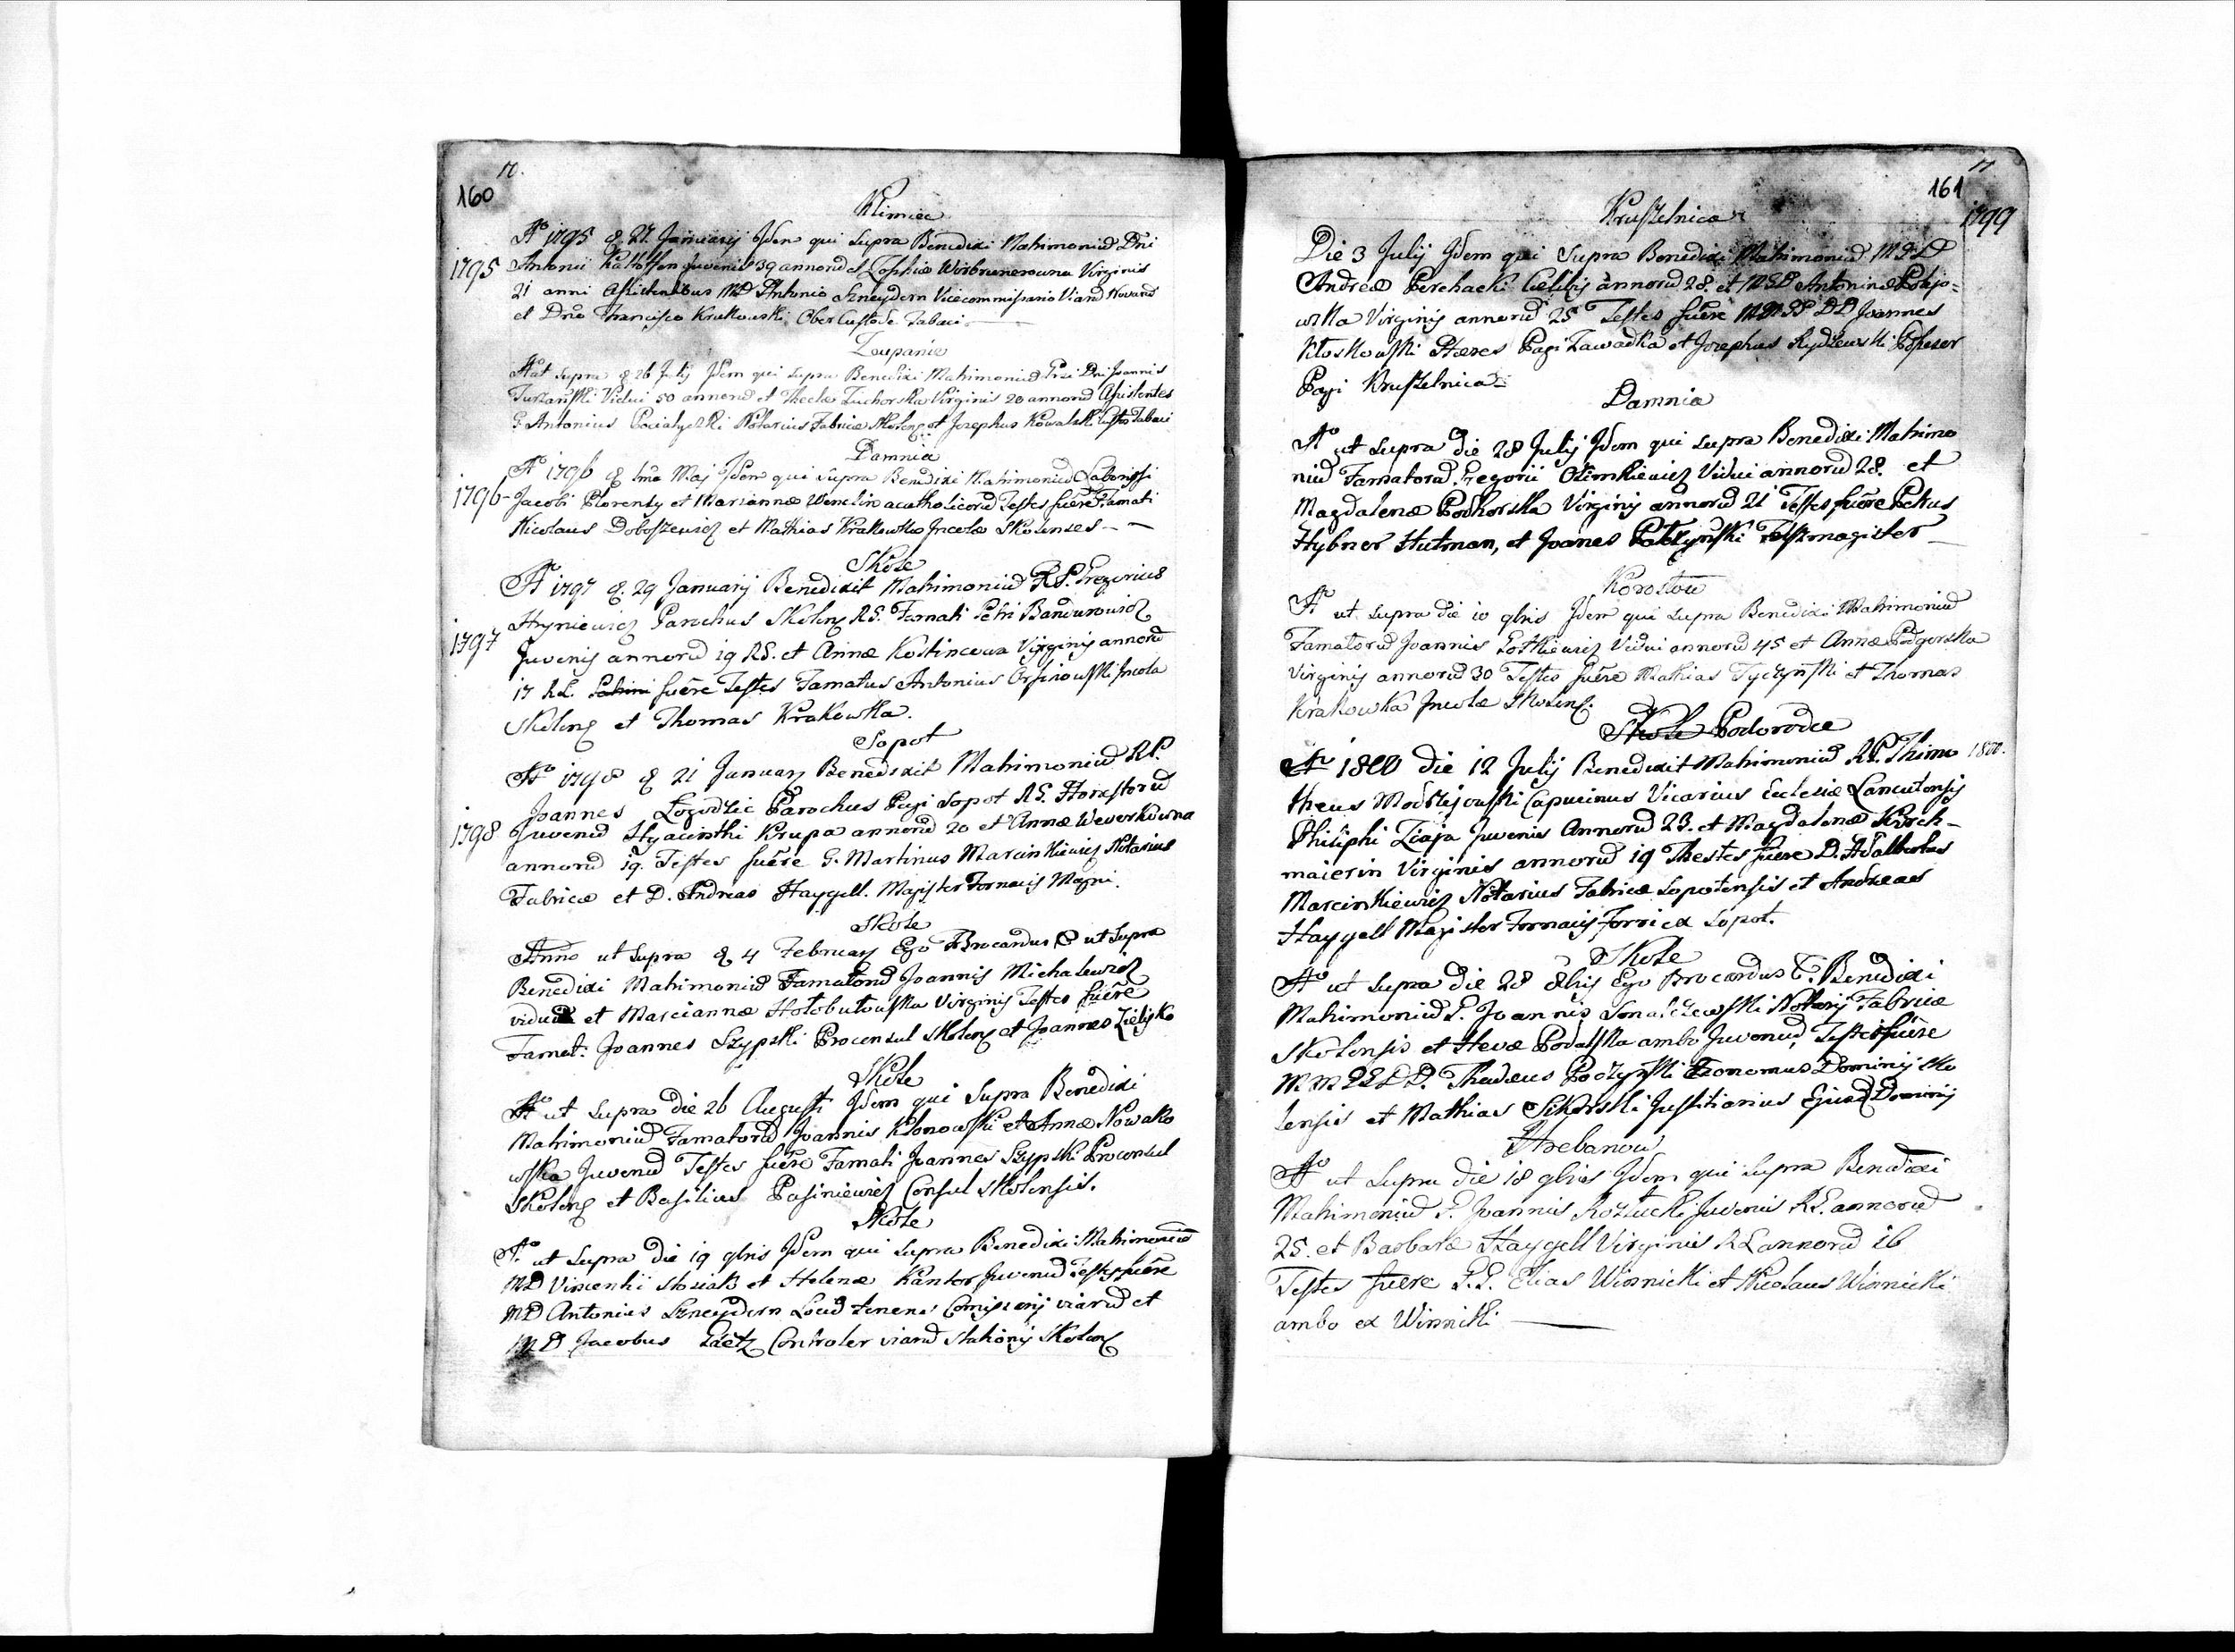 10.
160
Klimiec
Aō 1795 d. 27. Januarij Idem qui supra Benedixi Matrimoniū Dni
1795
Antonii Kaltoffen Juvenis 39 annorū et Zophiæ Wirbrunerowna Virginis
21 anni Assistentibus MD Antonio Szneydern Vicecommissario Viarū Novarū
et Dnō Francisco Krukowski Ober Custode Tabaci
Zupanie
Aō ut supra d 26 Julij Idem qui supra Benedixi Matrimoniū Dni Joannis
Turzański Vidui 50 annorū et Theclæ Zuchorska Virginis 20 annorū Assistentes
G. Antonius Notarius Fabricæ Skolens et Josephus Kowalski Custos Tabaci
Damnia
Aō 1796 d 1mā Maj Idem qui supra Benedixi Matrimoniū Laboriosi
1796
Jacobi Florendy et Mariannæ Wenclin acatholicorū Testes fuēre Famati
Nicolaus Doboszewicz et Mathias Krakowka Incolæ Skolenses
Skole
Aō 1797 d. 29 Januarij Benedixit Matrimoniū R.P. Gregorius
Hryniewicz Parochus Skolens RG. Famati Petri Bandurowicz
1797
Juvenis annorū 19 RG. et Annæ Kostincowa Virginis annorū
17 RL. fuēre Testes Famatus Antonius Orsinowski Incola
Skolens et Thomas Krakowka.
Sopot
Aō 1798 d 21 January Benedixit Matrimoniū RP.
Joannes Łozodzic Parochus Pagi Sopot RG. Honestorū
1798
Juvenū Hyacinthi Krupa annorū 20 et Annæ Weverkowna
annorū 19. Testes fuēre G. Martinus Marcinkiewicz Notarius
Fabricæ et D. Andreas Haygell. Magister Fornacis Magni.
Skole
Anno ut supra d 4 February Ego Brocardus ut supra
Benedixi Matrimoniū Famatorū Joannis Michalewicz
vidui et Mariannæ Hołobutowska Virginis Testes fuēre
Famat: Joannes Szypski Proconsul Skolens et Joannes Zielisko
Skole
Aō ut supra die 26 Augusti Idem qui supra Benedixi
Matrimoniū Famatorū Joannis Klonowski et Annæ Nowako
wska Juvenū Testes fuēre Famati Joannes Szypski Proconsul
Skolens et Basilius Pasiniewicz Consul Skolensis.
Skole
Aō ut supra die 19 9bris Idem qui supra Benedixi Matrimoniū
MD Vincentii Słoziak et Helenæ Kantor Juvenū Testes fuēre
MD Antonius Szneydern Locū tenens Comissarij viarū et
MD Jacobus Taetz Controler viarū Stationis Skolens
11
161
Kruszelnica
1799
Die 3 Julij Idem qui Supra Benedixi Matrimoniū MGD
Andreæ Perchacki Cælibis annorū 28. et MGD Antoninæ Potyo=
wska Virginis annorū 25 Testes fuēre MMGG DD Joannes
Kłoskowski Hæres Pagi Zawadka et Josephus Rydzewski Possessor
Pagi Kruszelnica
Damnia
Aō ut supra die 28 Julij Idem qui supra Benedixi Matrimo
niū Famatorū Gregorii Olimkiewicz Vidui annorū 28. et
Magdalenæ Podhorska Virginis annorū 21 Testes fuēre Petrus
Hybner Hutman, et Joanes Patzyński Felszmagister
Korostow
Aō ut supra die 10 9bris Idem qui supra Benedixi Matrimoniū
Famatorū Joannis Łotkiewicz Vidui annorū 45 et Annæ Podgorska
Virginis annorū 30 Testes fuēre Mathias Tyczyński et Thomas
Krakowka Incolæ Skolens.
Skole Podorodce
Aō 1800 die 12 Julij Benedixit Matrimoniū R.P. Thimo
1800.
theus Modrzejowski Capucinus Vicarius Ecclesiæ Lancutensis
Philiphi Ziaja Juvenis Annorū 23. et Magdalenæ Kirch-
maierin Virginis annorū 19 Thestes fuere D. Adalbertus
Marcinkiewicz Notarius Fabricæ Sopotensis et Andreas
Haygell Magister Fornacis Ferri ex Sopot.
Skole
Aō ut supra die 28 8bris Ego Brocardus C. Benedixi
Matrimoniū G. Joannis Notarij Fabricæ
Skolensis et Hevæ Podalska ambo Juvenū, Testes fuēre
MMGGDD. Thadæus Poczyński Œconomus Dominij Sko
lensis et Mathias Sikorski Justitiarius Ejusd Dominij
Hrebanow
Aō ut supra die 18 9bris Idem qui supra Benedixi
Matrimoniū G. Joannis Roztucki Juvenis RG. annorū
25. et Barbaræ Haygell Virginis RL annorū 16
Testes fuere G.G. Elias Winnicki et Nicolaus Winnicki
ambo ex Winniki